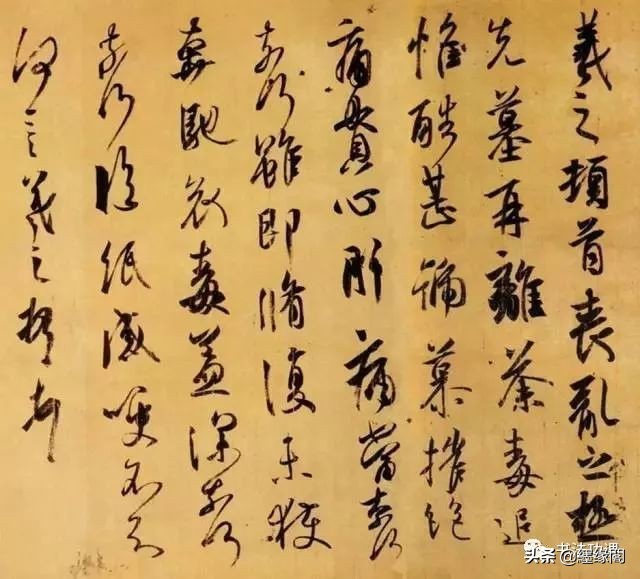 羲之頓首喪亂之極
先墓再離荼毒追
惟酷甚號慕摧絕
痛貫心肝痛當奈何
奈何雖即脩復未獲
奔馳哀毒益深奈何
奈何臨紙感哽不知
何言羲之頓首
书法功课
头条